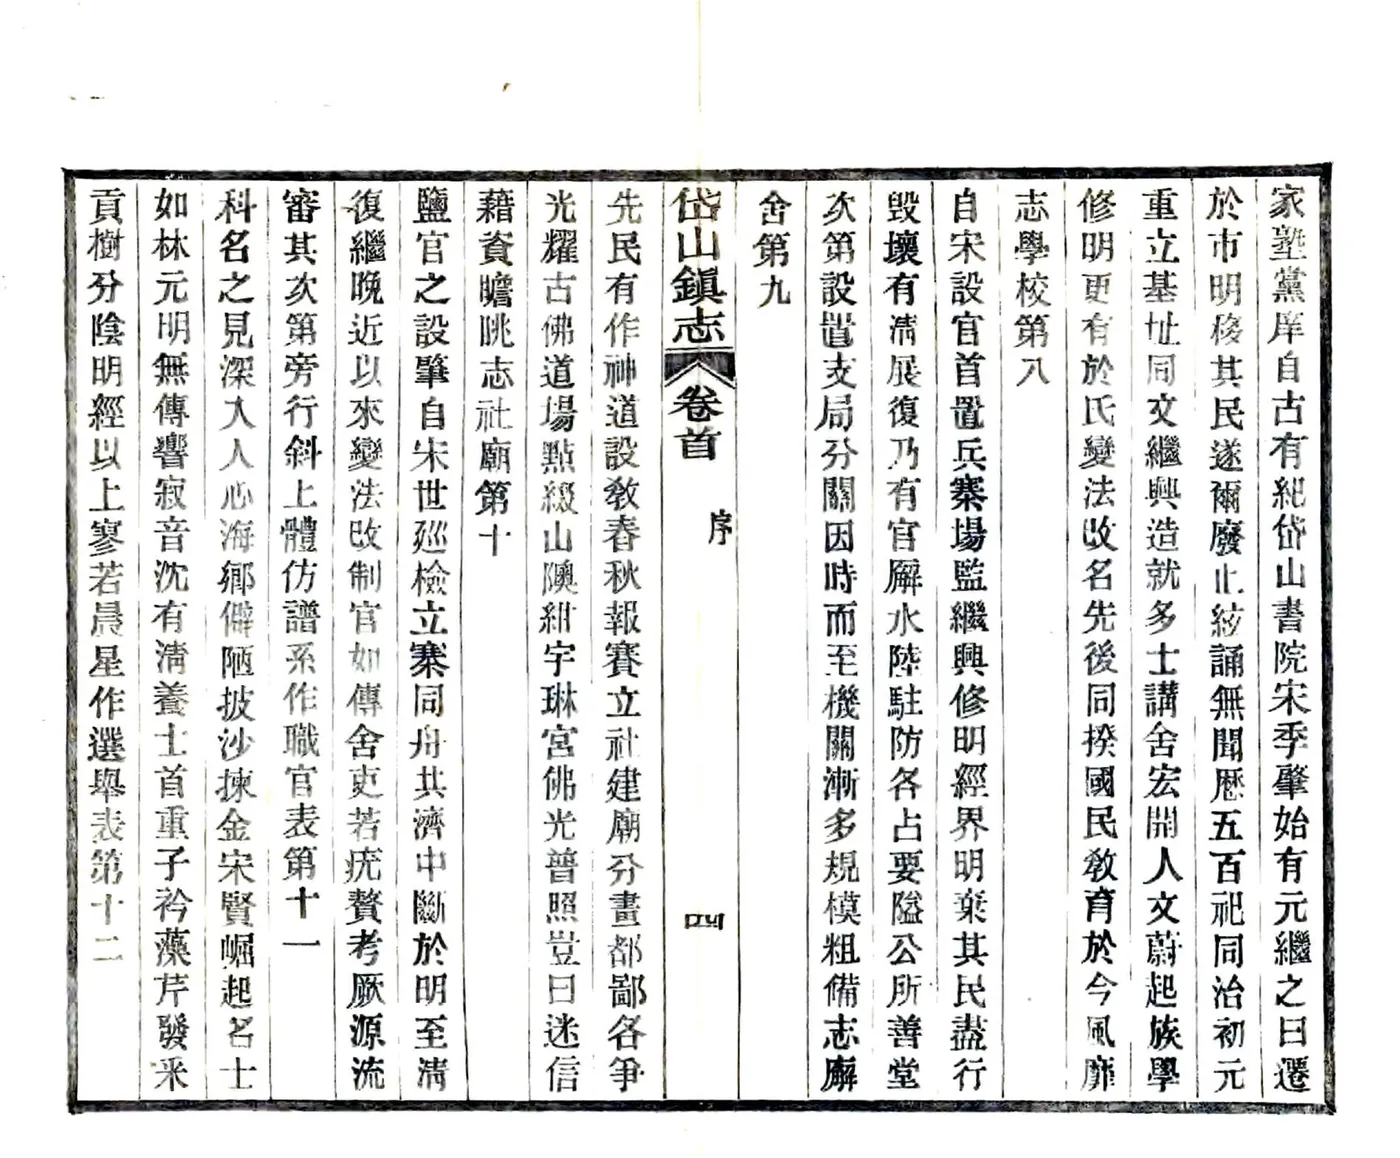 家塾黨庠自古有紀岱山書院宋季肇始有元繼之曰遷
於市明移其民遂爾廢止絃誦無聞歷五百祀同治初元
重立基址同文繼興造就多士講舍宏開人文蔚起族學
修明更有於氏變法改名先後同揆國民教育於今風靡
志學校第八
自宋設官首置兵寨場監繼興修明經界明棄其民盡行
毀壞有淸展復乃有官廨水陸駐防各占要隘公所善堂
次第設置支局分關因時而至機關漸多規模粗備志廨
舍第九
岱山鎮志 卷首 序 四
先民有作神道設敎春秋報賽立社建廟分畫都鄙各爭
光耀古佛道場點綴山隩紺宇琳宮佛光普照豈曰迷信
藉資瞻眺志社廟第十
鹽官之設肇自宋世廵檢立寨同舟共濟中斷於明至淸
復繼晚近以來變法改制官如傳舍吏若疣贅考厥源流
審其次第旁行斜上體仿譜系作職官表第十一
科名之見深入人心海鄉僻陋披沙揀金宋賢崛起名士
如林元明無傳響寂音沈有淸養士首重子衿藻芹發采
貢樹分陰明經以上寥若晨星作選舉表第十二